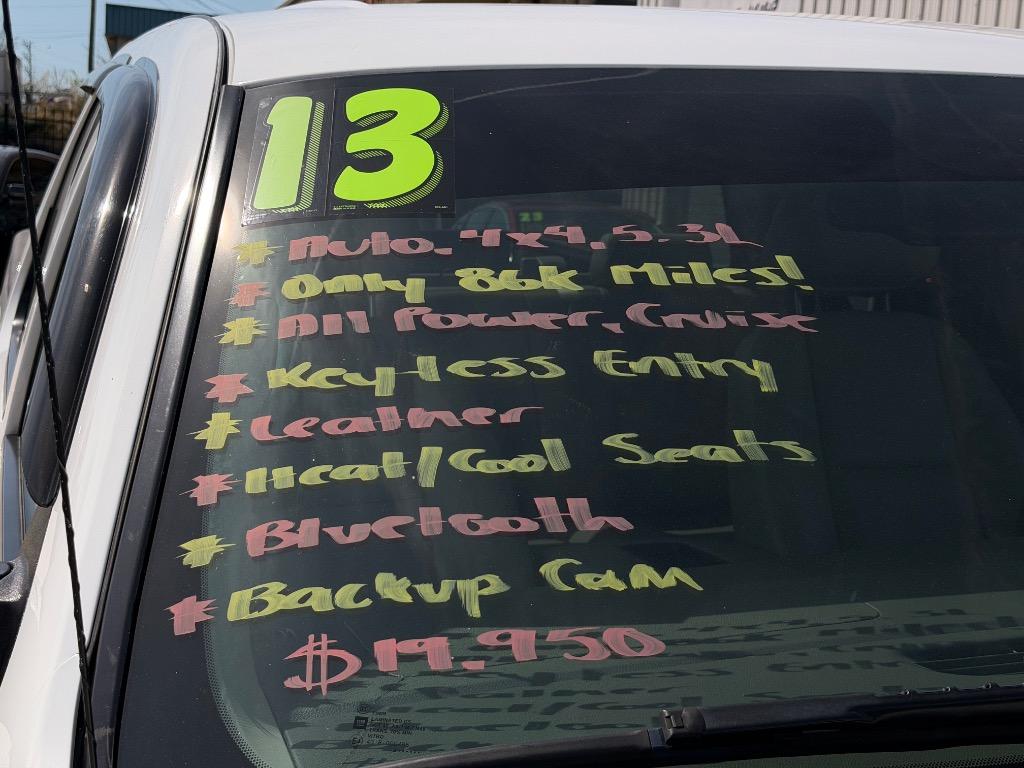 13
* Auto. 4x4. 5.3L
* Only 86K Miles!
* All Power, Cruise
* Keyless Entry
* Leather
* Heat/Cool Seats
* Bluetooth
* Backup Cam
$19.950
23